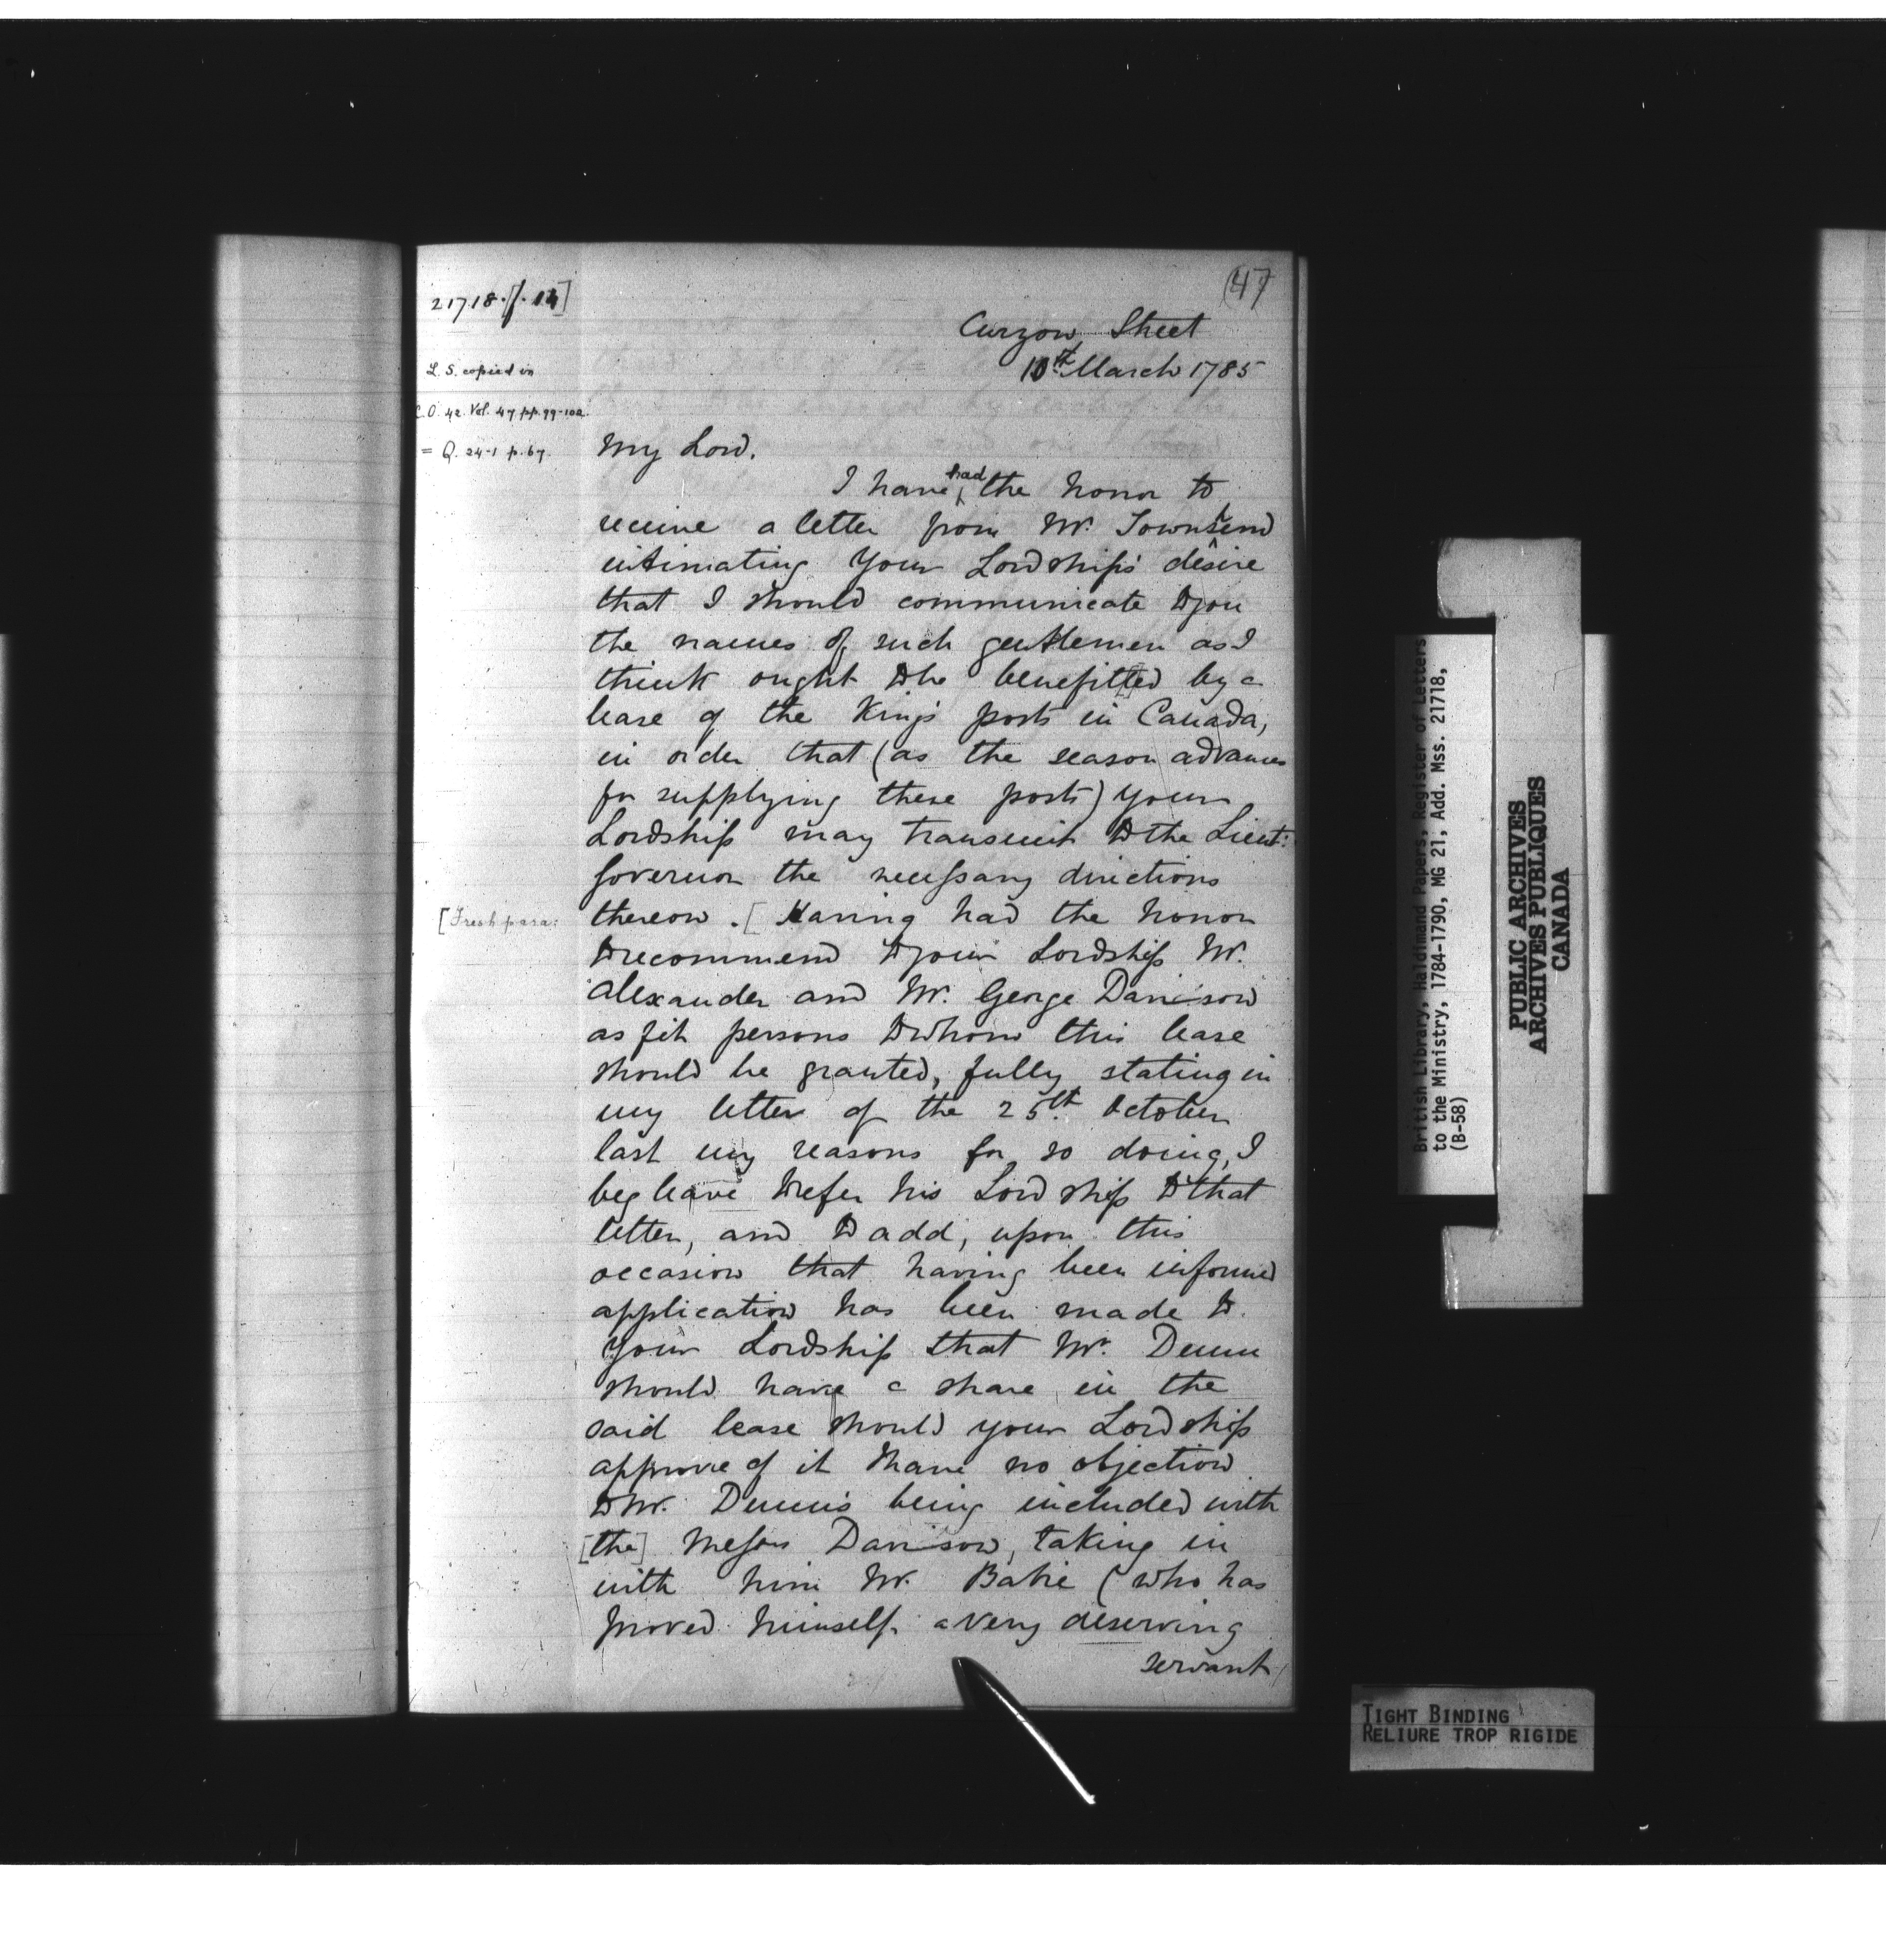 (47
21718.[f. 14]
Curzon Street
10th March 1785
L. S. copied in
C.O. 42. Vol. 47 pp. 99-102.
= Q. 24-1 p. 67.
My Lord.
I have had the honor to
receive a letter from Mr. Townshend
intimating Your Lordship's desire
that I should communicate to you
the names of such gentlemen as I
think ought to be benefitted by a
lease of the King's posts in Canada,
in order that (as the season advances
for supplying these posts) your
Lordship may transmit to the Lieut:
Governor the necessary directions
[Fresh para:
thereon. [Having had the honor
to recommend to your Lordship Mr.
Alexander and Mr. George Davison
as fit persons to whom this lease
should be granted, fully stating in
my letter of the 25th October
last my reasons for so doing, I
beg leave to refer his Lordship to that
letter, and to add, upon this
occasion that having been informed
application has been made to
your Lordship that Mr. Dunn
should have a share in the
said lease should your Lordship
approve of it I have no objection
to Mr. Dunn's being included with
[the] Messrs Davison, taking in
with him Mr. Babie (who has
proved himself a very deserving
servant
British Library, Haldimand Papers, Register of Letters
to the Ministry, 1784-1790, MG 21, Add. Mss. 21718,
(B-58)
PUBLIC ARCHIVES
ARCHIVES PUBLIQUES
CANADA
TIGHT BINDING
RELIURE TROP RIGIDE